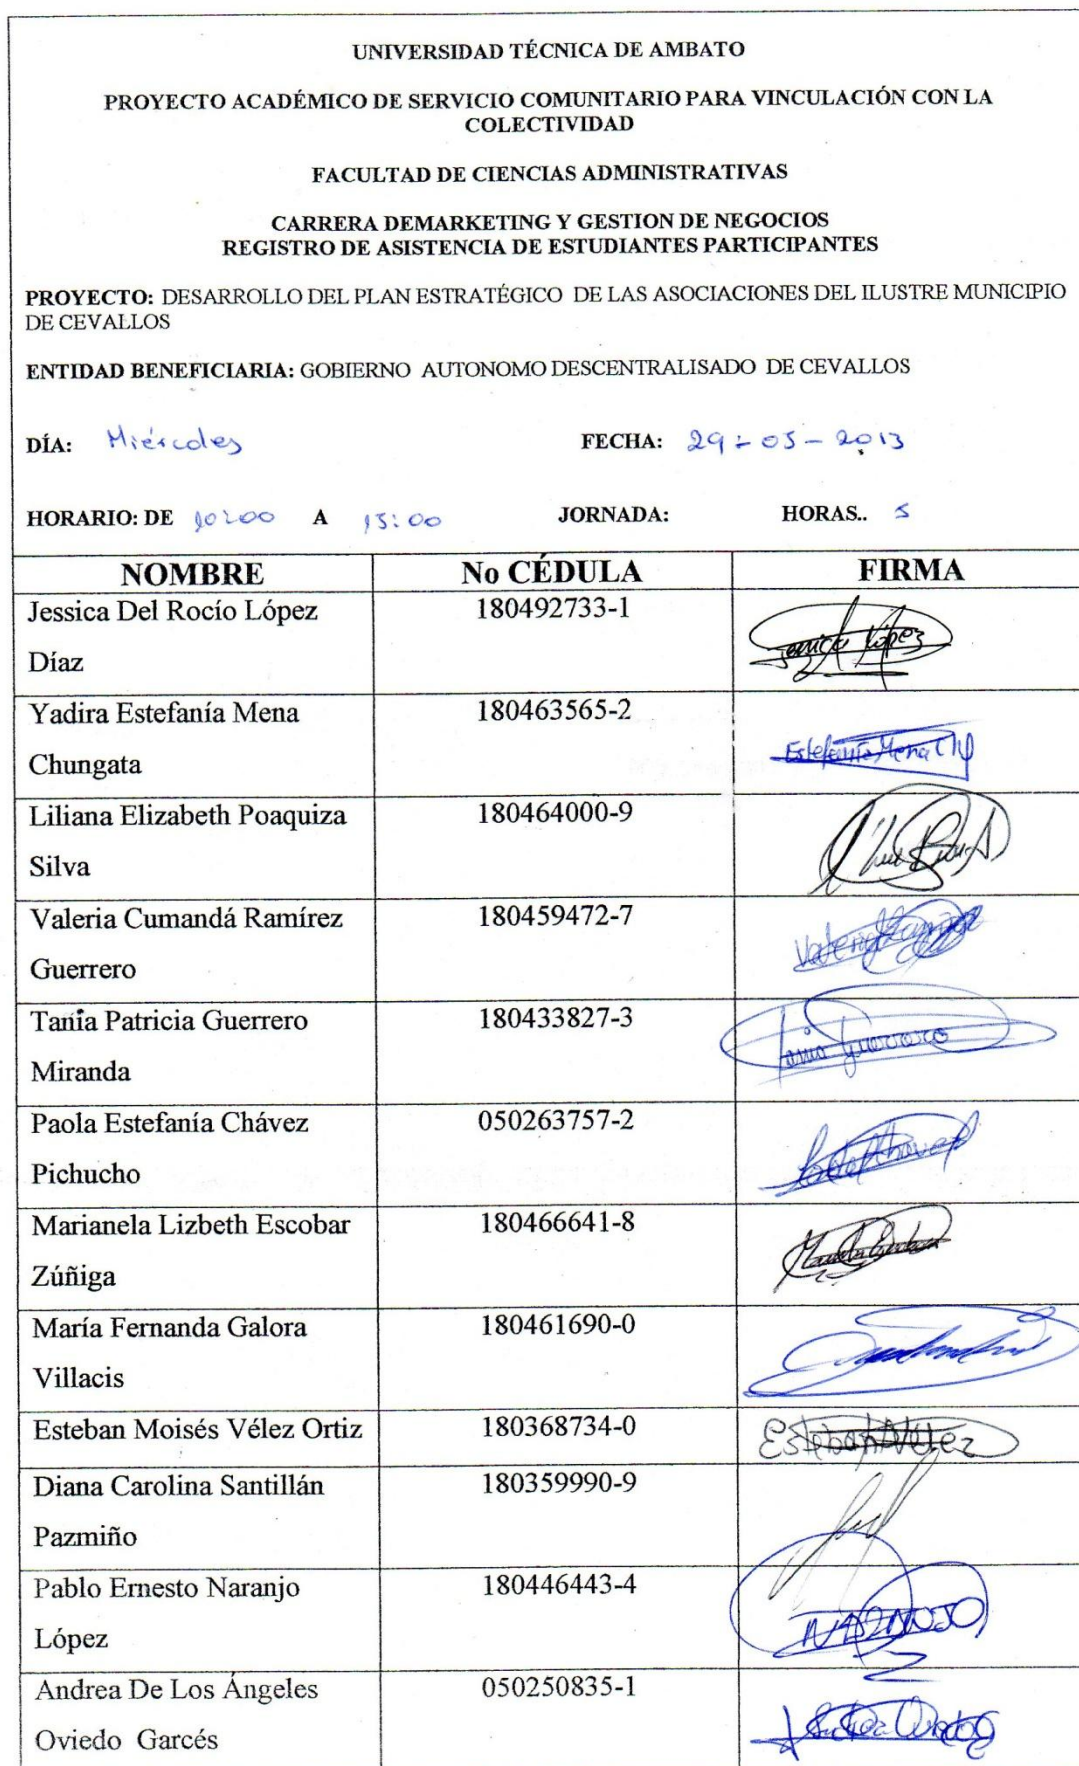 UNIVERSIDAD TÉCNICA DE AMBATO
PROYECTO ACADÉMICO DE SERVICIO COMUNITARIO PARA VINCULACIÓN CON LA
COLECTIVIDAD
FACULTAD DE CIENCIAS ADMINISTRATIVAS
CARRERA DEMARKETING Y GESTION DE NEGOCIOS
REGISTRO DE ASISTENCIA DE ESTUDIANTES PARTICIPANTES
PROYECTO: DESARROLLO DEL PLAN ESTRATÉGICO DE LAS ASOCIACIONES DEL ILUSTRE MUNICIPIO
DE CEVALLOS
ENTIDAD BENEFICIARIA: GOBIERNO AUTONOMO DESCENTRALISADO DE CEVALLOS
DÍA: Miércoles FECHA: 29-05-2013
HORARIO: DE 10:00 A 15:00 JORNADA: HORAS.. 5
NOMBRE No CÉDULA FIRMA
Jessica Del Rocío López 180492733-1 Jessica López
Díaz
Yadira Estefanía Mena 180463565-2 Estefanía Mena Ch
Chungata
Liliana Elizabeth Poaquiza 180464000-9
Silva
Valeria Cumandá Ramírez 180459472-7 Valeria Ramírez
Guerrero
Tania Patricia Guerrero 180433827-3 Tania Guerrero
Miranda
Paola Estefanía Chávez 050263757-2
Pichucho
Marianela Lizbeth Escobar 180466641-8
Zúñiga
María Fernanda Galora 180461690-0
Villacis
Esteban Moisés Vélez Ortiz 180368734-0 Esteban Vélez
Diana Carolina Santillán 180359990-9
Pazmiño
Pablo Ernesto Naranjo 180446443-4 NARANJO
López
Andrea De Los Ángeles 050250835-1 Andrea Oviedo
Oviedo Garcés